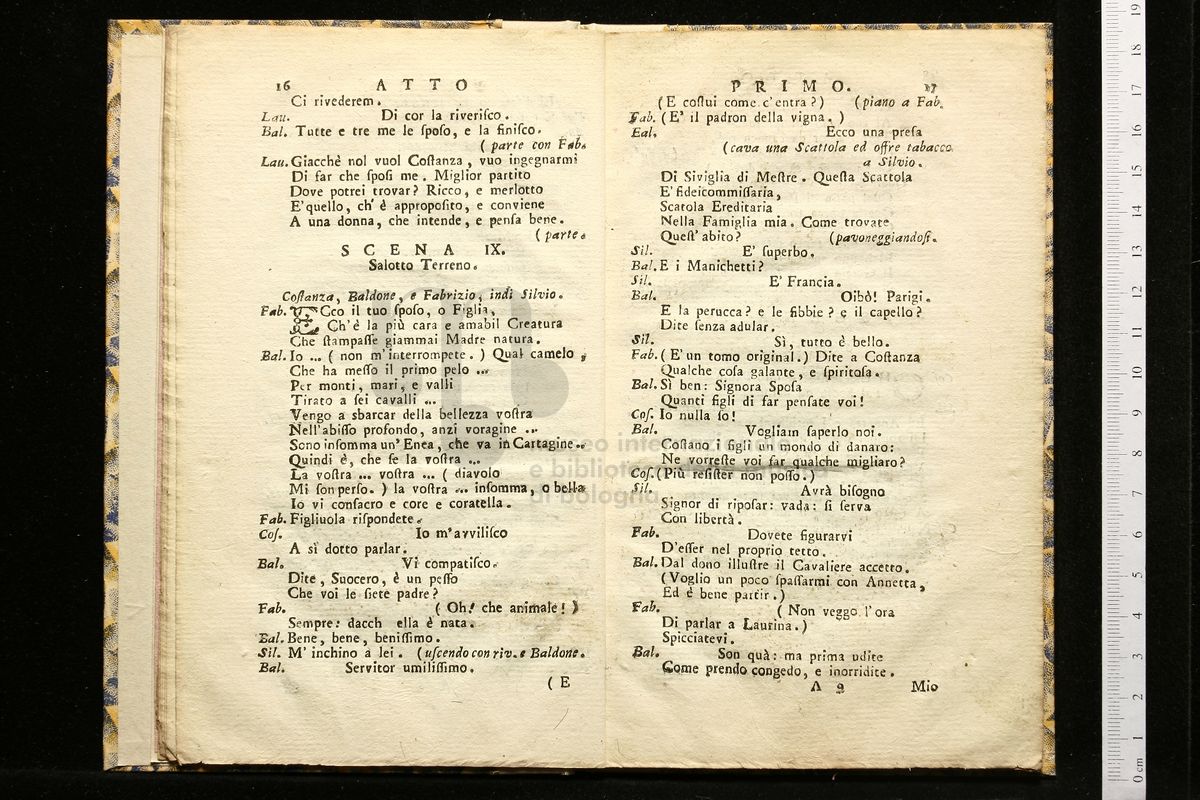 16 ATTO
Ci rivederem.
Lau. Di cor la riveriſco.
Bal. Tutte e tre me le ſpoſo, e la finiſco.
( parte con Fab.
Lau. Giacchè nol vuol Coſtanza, vuo ingegnarmi
Di far che ſpoſi me. Miglior partito
Dove potrei trovar? Ricco, e merlotto
E' quello, ch' è appropoſito, e conviene
A una donna, che intende, e penſa bene.
( parte.
SCENA IX.
Salotto Terreno.
Coſtanza, Baldone, e Fabrizio, indi Silvio.
Fab. ECco il tuo ſpoſo, o Figlia,
Ch'è la più cara e amabil Creatura
Che ſtampaſſe giammai Madre natura.
Bal. Io ... ( non m'interrompete. ) Qual camelo,
Che ha meſſo il primo pelo ...
Per monti, mari, e valli
Tirato a ſei cavalli ...
Vengo a sbarcar della bellezza voſtra
Nell'abiſſo profondo, anzi voragine ...
Sono inſomma un' Enea, che va in Cartagine..
Quindi è, che ſe la voſtra ...
La voſtra ... voſtra ... ( diavolo
Mi ſon perſo. ) la voſtra ... inſomma, o bella
Io vi conſacro e core e coratella.
Fab. Figliuola riſpondete.
Coſ. Io m'avviliſco
A sì dotto parlar.
Bal. Vi compatiſco.
Dite, Suocero, è un peſſo
Che voi le ſiete padre?
Fab. ( Oh! che animale! )
Sempre: dacch ella è nata.
Bal. Bene, bene, beniſſimo.
Sil. M' inchino a lei. (uſcendo con riv. e Baldone.
Bal. Servitor umiliſſimo.
( E
PRIMO. 17
( E coſtui come c'entra?) (piano a Fab.
Fab. (E' il padron della vigna. )
Bal. Ecco una preſa
(cava una Scattola ed offre tabacco
a Silvio.
Di Siviglia di Meſtre. Queſta Scattola
E' fideicommiſſaria,
Scatola Ereditaria
Nella Famiglia mia. Come trovate
Queſt' abito? (pavoneggiandoſi.
Sil. E' ſuperbo.
Bal. E i Manichetti?
Sil. E' Francia.
Bal. Oibò! Parigi.
E la perucca? e le fibbie? e il capello?
Dite ſenza adular.
Sil. Sì, tutto è bello.
Fab. ( E' un tomo original.) Dite a Coſtanza
Qualche coſa galante, e ſpiritoſa.
Bal. Sì ben: Signora Spoſa
Quanti figli di far penſate voi!
Coſ. Io nulla ſo!
Bal. Vogliam ſaperlo noi.
Coſtano i figli un mondo di danaro:
Ne vorreſte voi far qualche migliaro?
Coſ. (Più reſiſter non poſſo.)
Sil. Avrà biſogno
Signor di ripoſar: vada: ſi ſerva
Con libertà.
Fab. Dovete figurarvi
D'eſſer nel proprio tetto.
Bal. Dal dono illuſtre il Cavaliere accetto.
(Voglio un poco ſpaſſarmi con Annetta,
Ed è bene partir.)
Fab. ( Non veggo l'ora
Di parlar a Laurina.)
Spicciatevi.
Bal. Son quà: ma prima udite
Come prendo congedo, e inorridite.
A 9 Mio